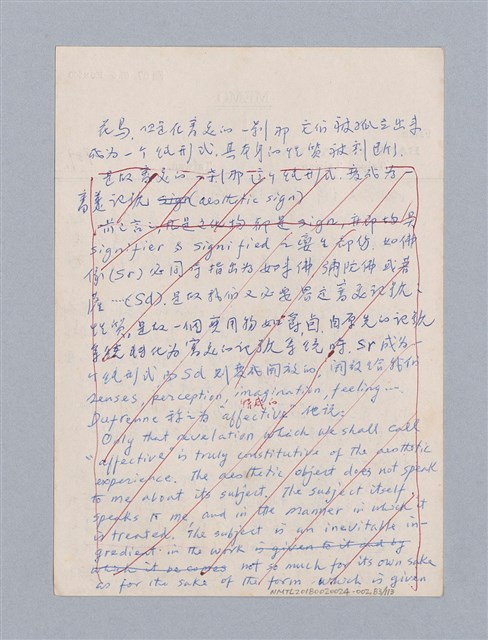 花鳥，但在化審美的一刹那 它們被孤立出來
成為一个純形式，具有的性質被判斷，
是以審美的一刹那這个純形式，變成為一
審美記號 sign (aesthetic sign)
前之言 凡是之物都是 sign，并即均具
signifier & signified 之 關係，如佛
像(Sr) 必同時指出為如來佛 彌陀佛 或菩
薩 …(Sd)，是以我們又必要否定審美記號
性質，是以一個實用物如爵卣，由原先的記號
系統轉化為審美的記號系統時，Sr 成為
一个純形式而 Sd 則變成開放的，開放給我們
senses, perception, imagination, feeling …
Dufrenne 稱之為 "affective" 情感的 他說：
Only that revelation which we shall call
"affective" is truly constitutive of the aesthetic
experience. The aesthetic object does not speak
to me about its subject. The subject itself
speaks to me, and in the manner in which it
is treated. The subject is an inevitable in-
gredient in the work is given to it and by
which it becomes not so much for its own sake
as for the sake of the form which is given
NMTL20180020024-002.83/113